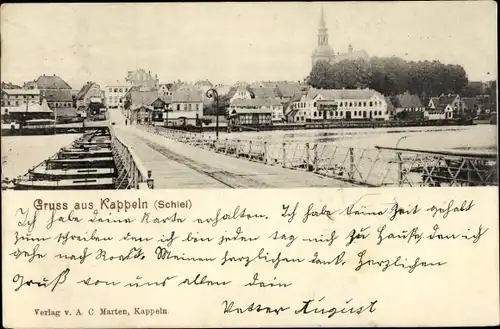 Gruss aus Kappeln (Schlei)
Ich habe deine Karte erhalten. Ich habe keine Zeit gehabt
zum schreiben den ich ben jeden tag nich zu Hauße, den ich
gehe nach Meinen herzlichen dank. Herzlichen
Gruß von uns allen dein
Vetter August
Verlag v. A. C Marten, Kappeln.